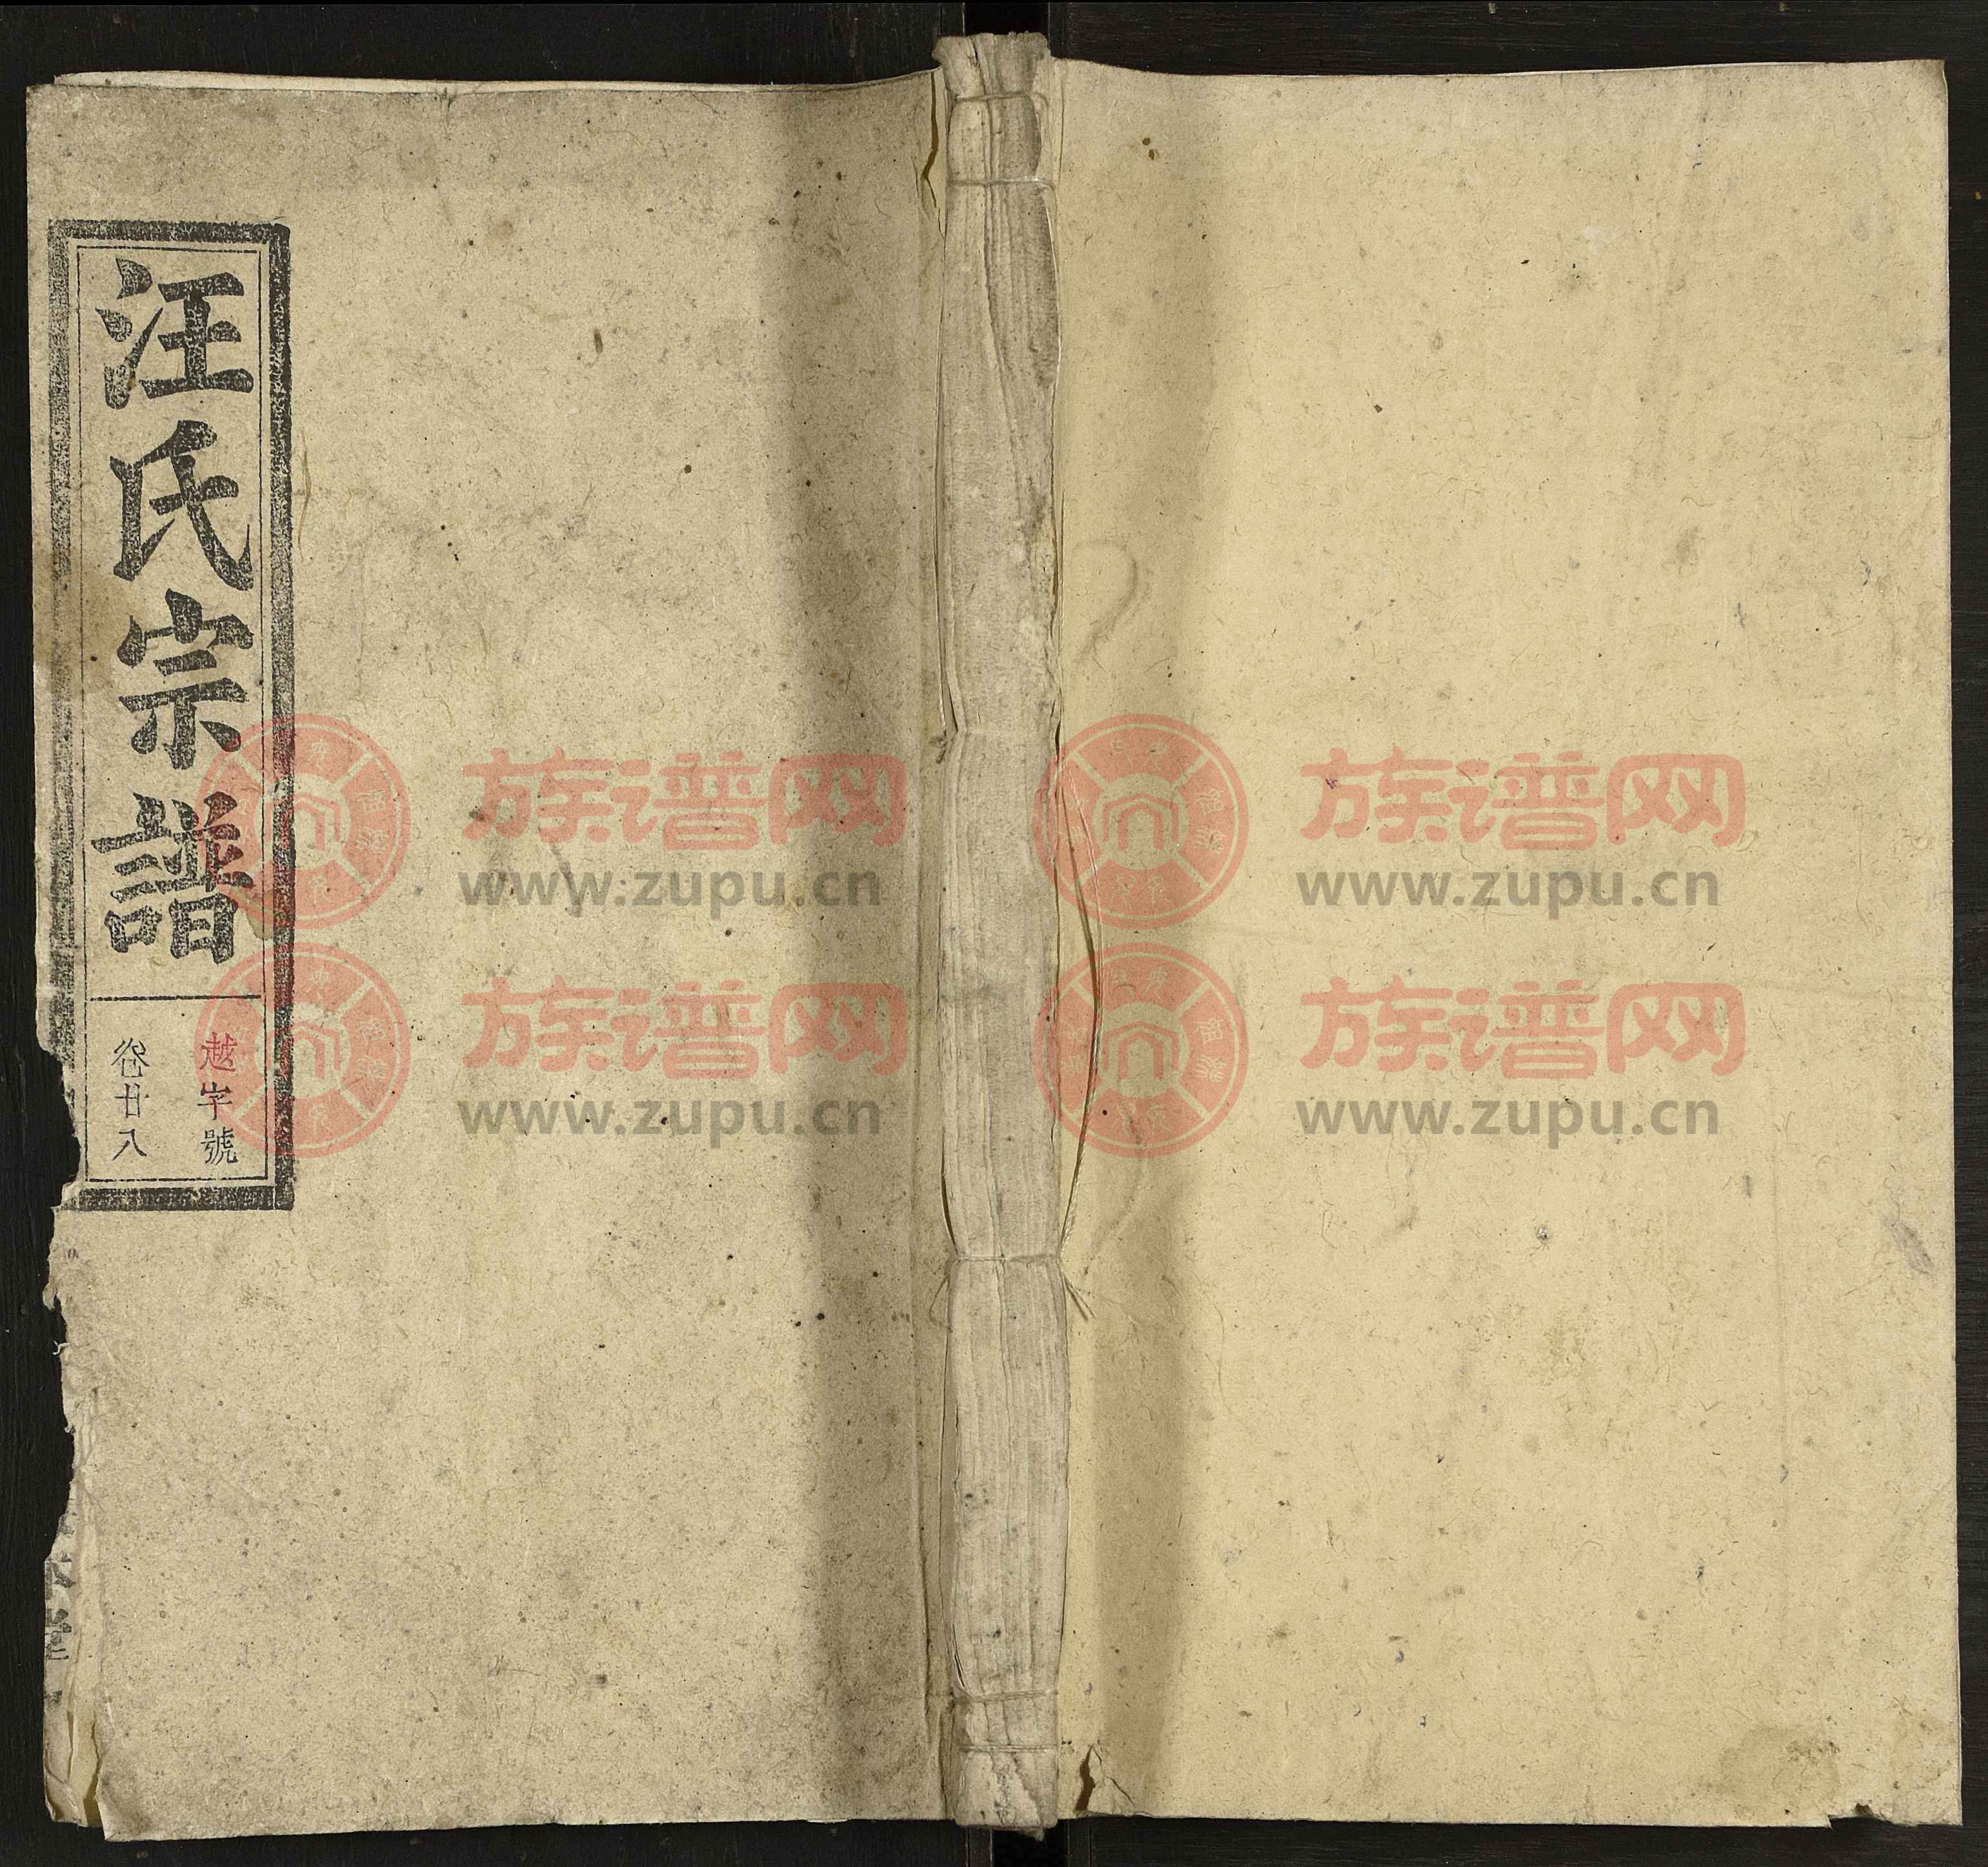 汪氏宗譜
越字號
卷廿八
族谱网
www.zupu.cn
族谱网
www.zupu.cn
族谱网
www.zupu.cn
族谱网
www.zupu.cn